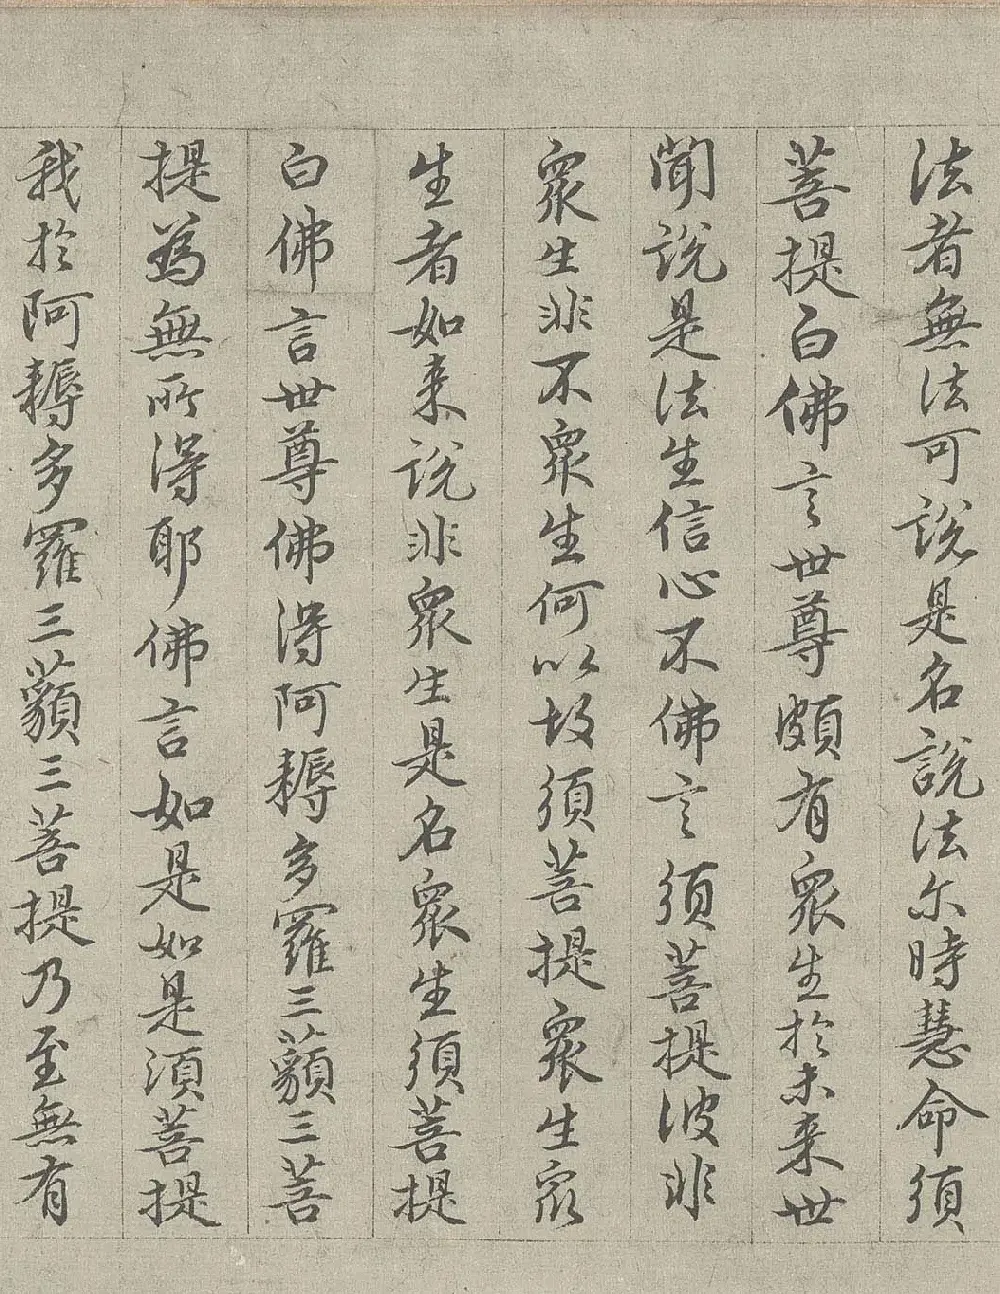 法者無法可說是名說法尒時慧命須
菩提白佛言世尊頗有眾生於未来世
聞說是法生信心不佛言須菩提彼非
眾生非不眾生何以故須菩提眾生眾
生者如来說非眾生是名眾生須菩提
白佛言世尊佛得阿耨多羅三藐三菩
提為無所得耶佛言如是如是須菩提
我於阿耨多羅三藐三菩提乃至無有